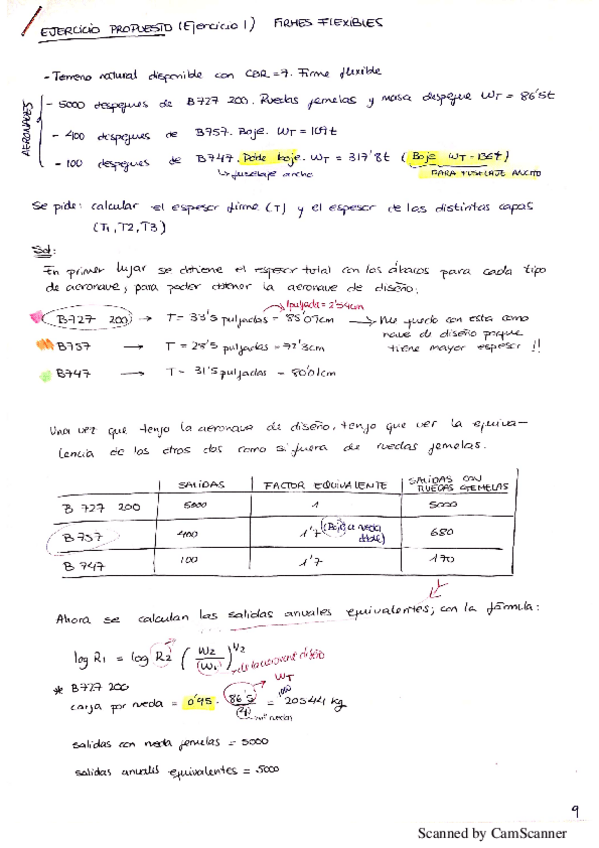 EJERCICIO PROPUESTO (Ejercicio 1) FIRMES FLEXIBLES
- Terreno natural disponible con CBR=7. Firme flexible
AERONAVES
- 5000 despegues de B727 200. Ruedas gemelas y masa despegue WT = 86'5t
- 400 despegues de B757. Boje. WT = 109t
- 100 despegues de B747. Doble boje. WT = 317'8t (Boje WT = 136t)
↳ fuselaje ancho PARA FUSELAJE ANCHO
Se pide: calcular el espesor firme (T) y el espesor de las distintas capas
(T1, T2, T3)
Sol:
En primer lugar se obtiene el espesor total con los ábacos para cada tipo
de aeronave, para poder obtener la aeronave de diseño:
1 pulgada = 2'54cm
B727 200 → T = 33'5 pulgadas = 85'07cm → Me quedo con esta como
nave de diseño porque
B757 → T = 28'5 pulgadas = 72'3cm tiene mayor espesor !!
B747 → T = 31'5 pulgadas = 80'01cm
Una vez que tengo la aeronave de diseño, tengo que ver la equiva-
lencia de los otros dos como si fuera de ruedas gemelas.
SALIDAS FACTOR EQUIVALENTE SALIDAS CON RUEDAS GEMELAS
B 727 200 5000 1 5000
B 757 400 1'7 (Boje a rueda doble) 680
B 747 100 1'7 170
Ahora se calculan las salidas anuales equivalentes, con la fórmula:
log R1 = log R2 (W2/W1)^1/2 → de la aeronave diseño
WT
* B727 200
carga por rueda = 0'95 · 86'5/(4) · 1000 = 20544 kg
nº ruedas
salidas con rueda gemelas = 5000
salidas anuales equivalentes = 5000
9
Scanned by CamScanner